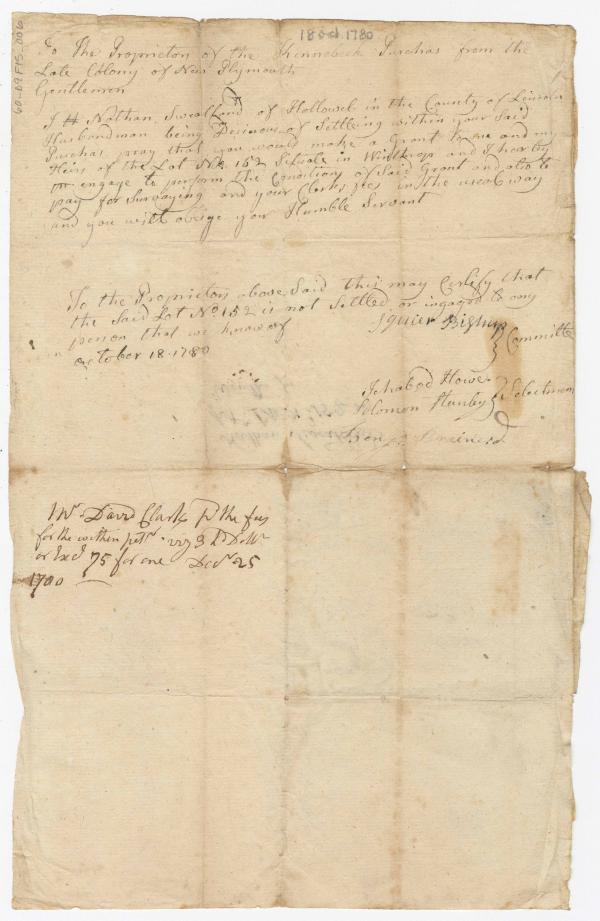 18 Oct. 1780
60-D9F15-006
To The Proprietors of the Kennebeck Purchas from the
Late Colony of New Plymouth
Gentlemen
I Nathan of Hollowel in the County of Lincoln
Husbandman being Desirous of Settling within your Said
Purchas pray that you would make a Grant to me and my
Heirs of the Lot No 152 Situate in Winthrop and I hereby
engage to perform the Conditions of Said Grant and also to
pay for Surveying and your Clerks fees in the usual way
and you will obeige your Humble Servant
To the Proprietors above Said this may Certify that
the Said Lot No 152 is not Settled or ingaged to any
person that we know of
October 18 1780
Squier Bishop
Committe
Ichabod Howe
Solomon Stanley
Selectmen
Mr. David Clark pd the fees
for the within petn. viz 3 hd Dollrs
or Exc. 75 for one Decr. 25
1780